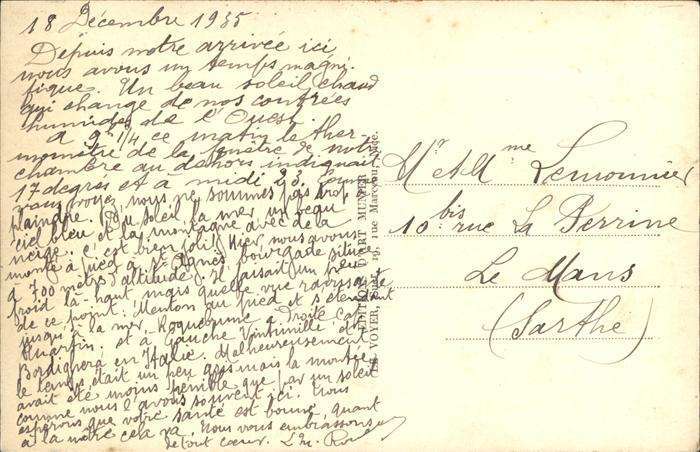 18 Décembre 1935
Depuis notre arrivée ici
nous avons un temps magni-
fique. Un beau soleil chaud
qui change de nos contrées
humides de l'Ouest.
A 9h 1/4 ce matin le ther-
momètre de la fenêtre de notre
chambre au dehors indiquait
17 degrés et à midi 23. Comme
vous voyez, nous ne sommes pas trop à
plaindre. Du soleil, la mer, un beau
ciel bleu et la montagne avec de la
neige. C'est bien joli! Hier, nous avons
monté à pied à Ste Agnès bourgade située
à 700 metres d'altitude. Il faisait un peu
froid là-haut, mais quelle vue ravissante
de ce point: Menton au pied et s'étendant
jusqu'à la mer. Roquebrune à Droite Cap
Martin. et à Gauche Vintimille et
Bordighera en Italie. Malheureusement
le temps était un peu gris mais la montée
avait été moins pénible que par un soleil
comme nous l'avons souvent ici. Nous
espérons que votre santé est bonne, quant
à la nôtre cela va. Nous vous embrassons
de tout cœur.
EDITION D'ART MUNIER
LE VOYER, Succr, 19, rue Marceau, Nice.
Mr et Mme Lemonnier
10 bis rue La Perrine
Le Mans
(Sarthe)